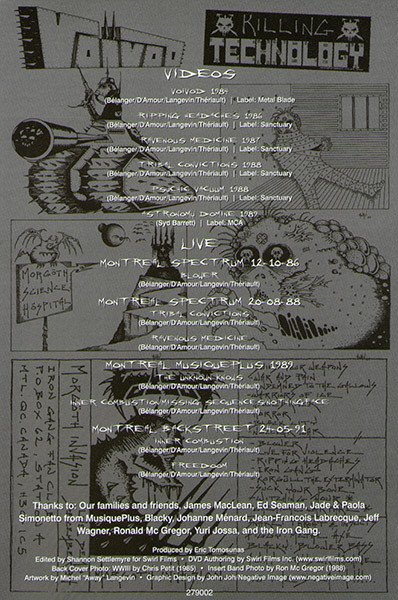 Voivod
KILLING
TECHNOLOGY
VIDEOS
VOIVOD 1984
(Bélanger/D'Amour/Langevin/Thériault) | Label: Metal Blade
RIPPING HEADACHES 1986
(Bélanger/D'Amour/Langevin/Thériault) | Label: Sanctuary
RAVENOUS MEDICINE 1987
(Bélanger/D'Amour/Langevin/Thériault) | Label: Sanctuary
TRIBAL CONVICTIONS 1988
(Bélanger/D'Amour/Langevin/Thériault) | Label: Sanctuary
PSYCHIC VACUUM 1988
(Bélanger/D'Amour/Langevin/Thériault) | Label: Sanctuary
ASTRONOMY DOMINE 1989
(Syd Barrett) | Label: MCA
LIVE
MORGÖTH
SCIENCE
HOSPITAL
MONTREAL SPECTRUM 12-10-86
BLOWER
(Bélanger/D'Amour/Langevin/Thériault)
MONTREAL SPECTRUM 20-08-88
TRIBAL CONVICTIONS
(Bélanger/D'Amour/Langevin/Thériault)
RAVENOUS MEDICINE
(Bélanger/D'Amour/Langevin/Thériault)
MONTREAL MUSIQUEPLUS 1989
THE UNKNOWN KNOWS
(Bélanger/D'Amour/Langevin/Thériault)
INNER COMBUSTION/MISSING SEQUENCES/NOTHINGFACE
(Bélanger/D'Amour/Langevin/Thériault)
MONTREAL BACKSTREET 24-05-91
INNER COMBUSTION
(Bélanger/D'Amour/Langevin/Thériault)
FREEDOOM
(Bélanger/D'Amour/Langevin/Thériault)
MORGÖTH INVASION
IRON GANG FAN CLUB
Thanks to: Our families and friends, James MacLean, Ed Seaman, Jade & Paola
Simonetto from MusiquePlus, Blacky, Johanne Ménard, Jean-Francois Labrecque, Jeff
Wagner, Ronald Mc Gregor, Yuri Jossa. and the Iron Gang.
Produced by Eric Tomosunas
Edited by Shannon Settlemyre for Swirl Films • DVD Authoring by Swirl Films Inc. (www.swirlfilms.com)
Back Cover Photo: WWIII by Chris Petit (1985) • Insert Band Photo by Ron Mc Gregor (1988)
Artwork by Michel "Away" Langevin • Graphic Design by John Joh Negative Image (www.negativeimage.com)
279002